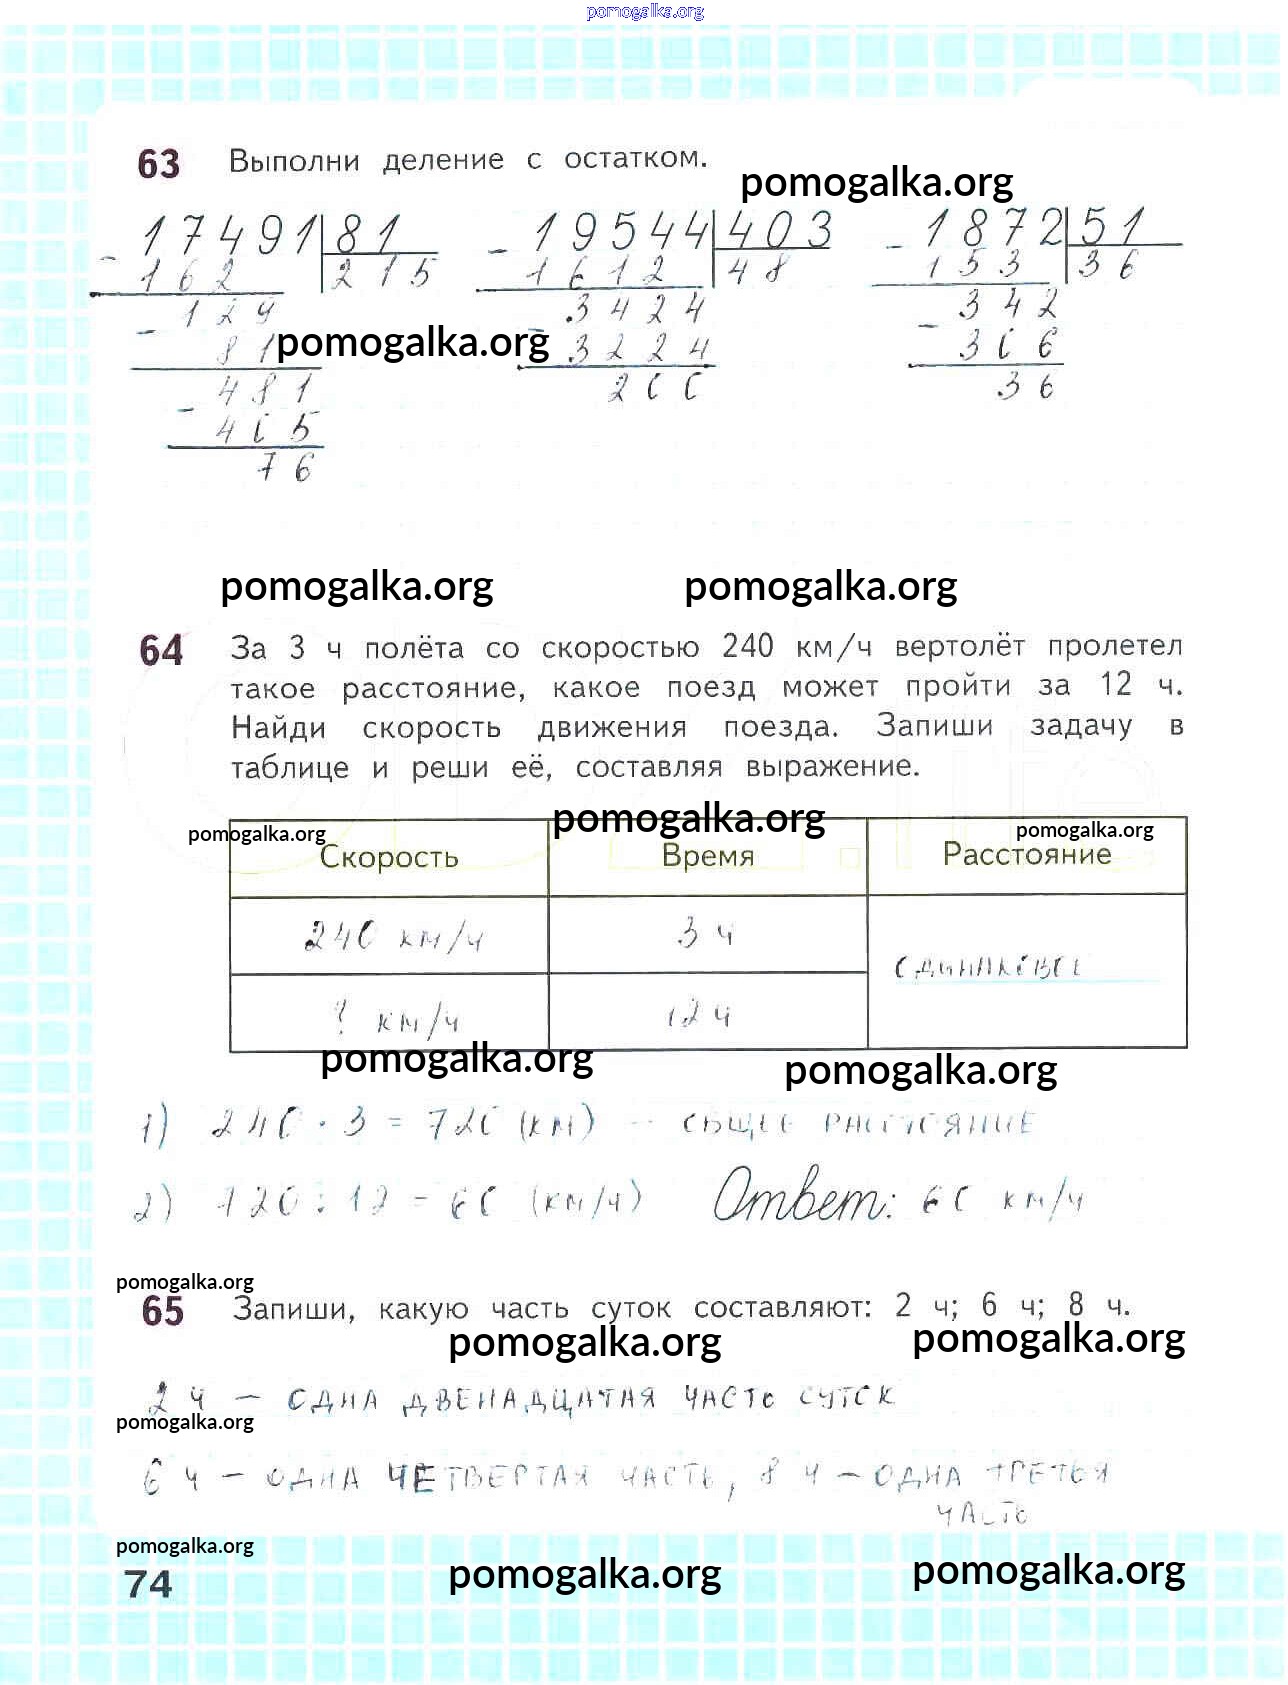 pomogalka.org
63 Выполни деление с остатком.
pomogalka.org
17491 81 19544 403 1872 51
162 215 1612 48 153 36
129 3424 342
81 3224 306
pomogalka.org
481 200 36
405
76
pomogalka.org pomogalka.org
64 За 3 ч полёта со скоростью 240 км/ч вертолёт пролетел
такое расстояние, какое поезд может пройти за 12 ч.
Найди скорость движения поезда. Запиши задачу в
таблице и реши её, составляя выражение.
pomogalka.org pomogalka.org pomogalka.org
Скорость Время Расстояние
240 км/ч 3 ч
одинаковое
? км/ч 12 ч
pomogalka.org pomogalka.org
1) 240 · 3 = 720 (км) - общее расстояние
2) 720 : 12 = 60 (км/ч) Ответ: 60 км/ч
pomogalka.org
65 Запиши, какую часть суток составляют: 2 ч; 6 ч; 8 ч.
pomogalka.org pomogalka.org
2 ч - одна двенадцатая часть суток
pomogalka.org
6 ч - одна четвертая часть, 8 ч - одна третья
часть
pomogalka.org
74 pomogalka.org pomogalka.org